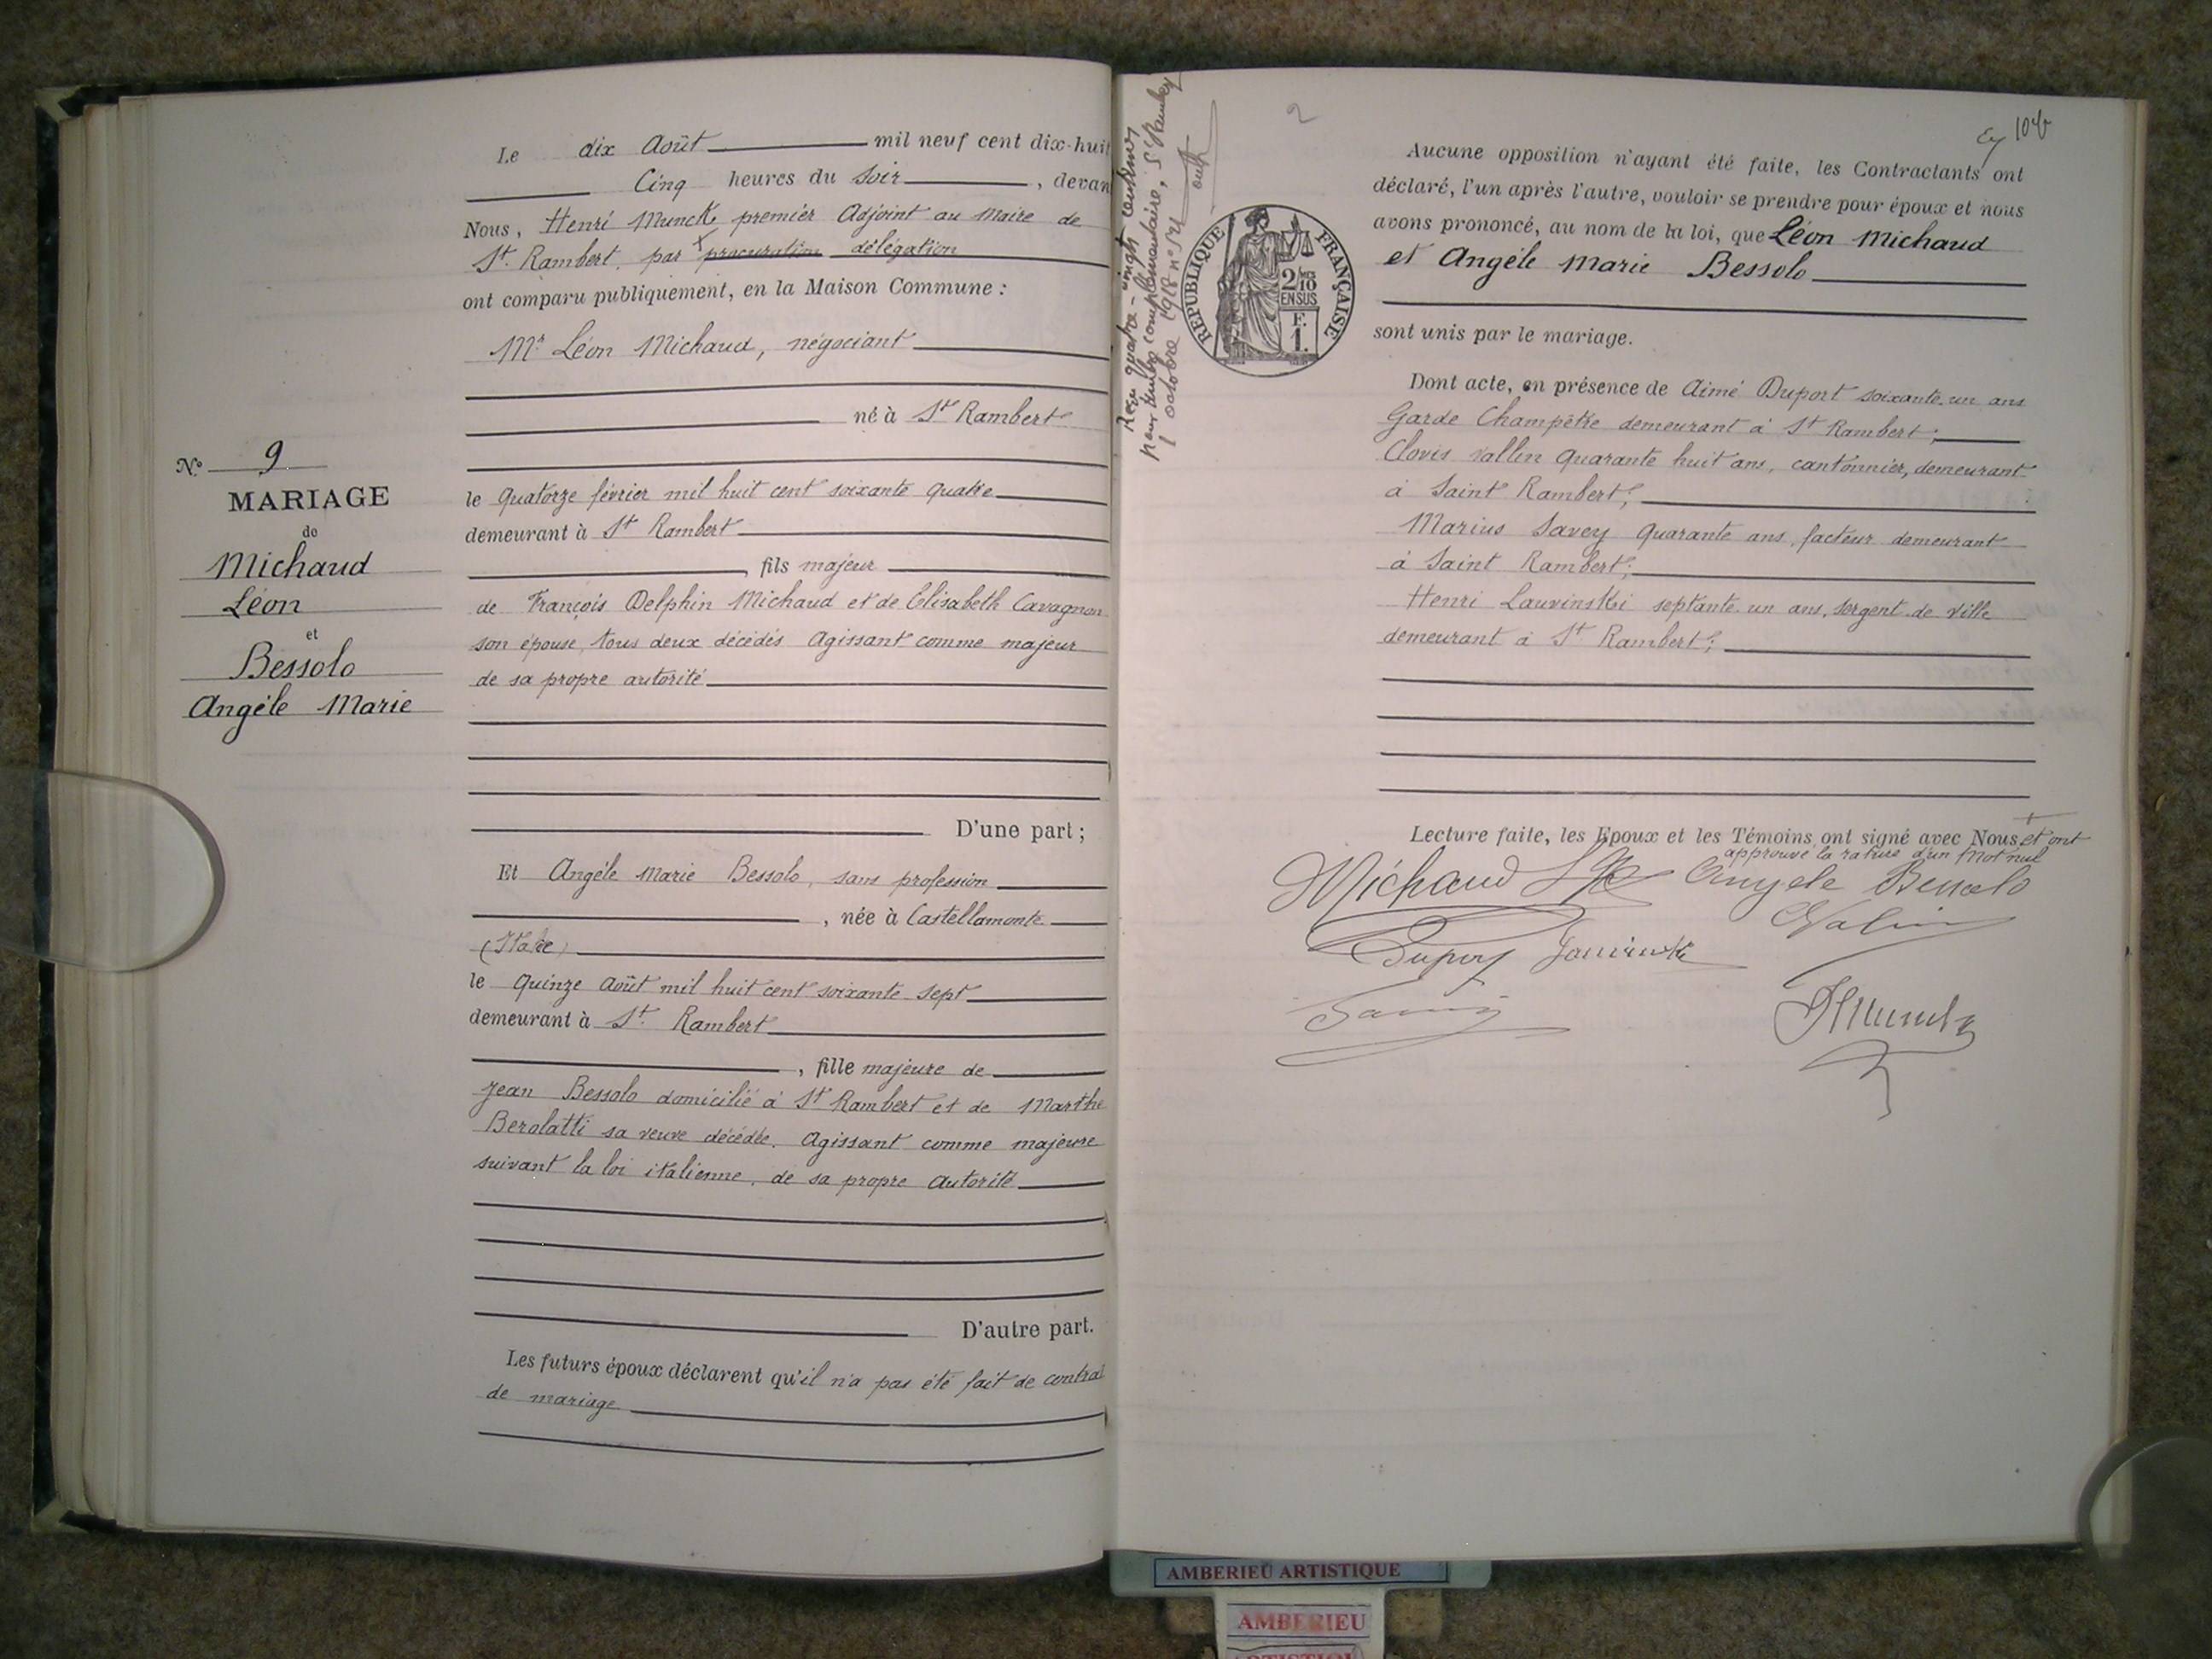 Le dix Août mil neuf cent dix-huit
Cinq heures du Soir, devan
Nous, Henri Munck premier Adjoint au Maire de
St. Rambert, par procuration délégation
ont comparu publiquement, en la Maison Commune :
Mr Léon Michaud, négociant
né à St Rambert
le Quatorze février mil huit cent soixante quatre
demeurant à St Rambert
, fils majeur
de François Delphin Michaud et de Elisabeth Cavagnon
son épouse, tous deux décédés Agissant comme majeur
de sa propre autorité
D'une part ;
Nº 9
MARIAGE
de
Michaud
Léon
et
Bessolo
Angèle Marie
Et Angèle Marie Bessolo, sans profession
, née à Castellamonte
(Italie)
le Quinze Août mil huit cent soixante sept
demeurant à St. Rambert
, fille majeure de
Jean Bessolo domicilié à St Rambert et de Marthe
Berolatti sa veuve décédée. Agissant comme majeure
suivant la loi italienne, de sa propre autorité
D'autre part.
Les futurs époux déclarent qu'il n'a pas été fait de contrat
de mariage
Reçu quatre-vingt centimes
pour timbre complémentaire, St Rambert
1 octobre 1918 nº
2
104
RÉPUBLIQUE FRANÇAISE
2/10
EN SUS
F.
1.
Aucune opposition n'ayant été faite, les Contractants ont
déclaré, l'un après l'autre, vouloir se prendre pour époux et nous
avons prononcé, au nom de la loi, que Léon Michaud
et Angèle Marie Bessolo
sont unis par le mariage.
Dont acte, en présence de Aimé Duport soixante-un ans
Garde Champêtre demeurant à St Rambert;
Clovis Vallin Quarante huit ans, cantonnier, demeurant
à Saint Rambert;
Marius Savey Quarante ans, facteur demeurant
à Saint Rambert;
Henri Lauvinski septante-un ans, sergent de ville
demeurant à St Rambert;
Lecture faite, les Epoux et les Témoins ont signé avec Nous et ont
approuvé la rature d'un mot nul
Michaud Angèle Bessolo
AMBERIEU ARTISTIQUE
AMBERIEU